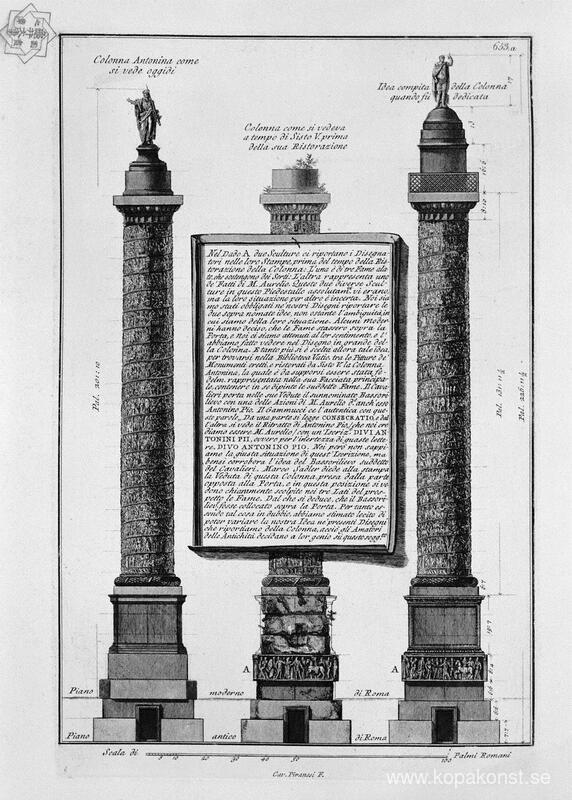 653.a
Colonna Antonina come
si vede oggidì
Colonna come si vedeva
a tempo di Sisto V. prima
della sua Ristorazione
Idea compita della Colonna
quando fù dedicata
Nel Dado A due Sculture ci riportano i Disegna-
tori nelle loro Stampe, prima del tempo della Ris-
torazione della Colonna: L'una è di tre Fame ala-
te, che sostengono dei Serti: L'altra rappresenta uno
de' Fatti di M. Aurelio. Queste due diverse Scul-
ture in questo Piedestallo assolutam. vi erano,
ma la loro situazione per altro è incerta. Noi sia-
mo stati obbligati ne' nostri Disegni riportare le
due sopra nomate idee, non ostante l'ambiguità in
cui siamo della loro situazione. Alcuni moder-
ni hanno deciso, che le Fame stassero sopra la
Porta, e Noi ci siamo attenuti al lor sentimento, e l'
abbiamo fatto vedere nel Disegno in grande del-
la Colonna. E tanto più si è scelta allora tale idea,
per trovarsi nella Biblioteca Vatic. tra le Pitture de'
Monumenti eretti, e ristorati da Sisto V. la Colonna
Antonina, la quale è da supporsi essere stata fe-
delm. rappresentata nella sua Facciata principa-
le, contenere in se dipinte le suddette Fame. Il Cava-
lieri porta nelle sue Vedute il sunnominato Bassori-
lievo con una delle Azioni di M. Aurelio d'anch'esso
Antonino Pio. Il Gammucci ce l'autentica con que-
ste parole,, Da una parte si legge CONSECRATIO, e dal
l'altra si vede il Ritratto di Antonino Pio, (che noi cre-
diamo essere M. Aurelio) con un'Iscriz. DIVI AN-
TONINI PII, ovvero per l'intertezza di queste lette-
re, DIVO ANTONINO PIO. Noi però non sappi-
amo la giusta situazione di quest'Iscrizione, ma
bensì corrobora l'idea del Bassorilievo suddetto
del Cavalieri. Marco Sadler diede alla stampa
la Veduta di questa Colonna, presa dalla parte
opposta alla Porta, e in questa posizione si ve-
dono chiaramente scolpite nei tre Lati del pros-
petto le Fame. Dal che si deduce, che il Bassori-
lievo fosse collocato sopra la Porta. Per tanto es-
sendo tal cosa in dubbio, abbiamo stimato lecito di
poter variare la nostra Idea ne' presenti Disegni
che riportiamo della Colonna, acciò gli Amatori
delle Antichità decidano a lor genio su questo sogg.
Pal. 201:10
Pal. 131:11½
Pal. 226:11½
A
A
Piano moderno di Roma
Piano antico di Roma
Scala di 5 10 20 30 40 50 100 Palmi Romani
Cav. Piranesi F.
www.kopakonst.se